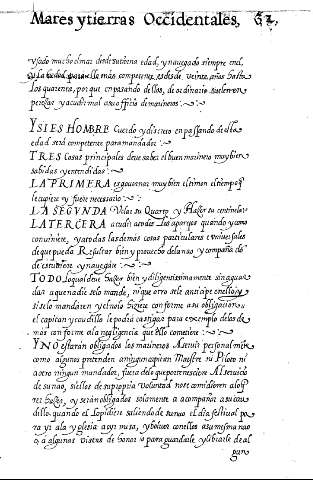 Mares y tierras Occidentales, 62,
usado mucho el mar desde su tierna edad, y navegado siempre en el,
y la hedad para ello mas competente, es desde veinte años hasta
los quarenta, por que en pasando dellos, de ordinario suelen ser
perezosos y acudir mal a su officio de marineros
YSI ES HOMBRE Cuerdo y discreto en passando de esta
edad sera competente para mandador
TRES Cosas principales deve saber el buen marinero muy bien
sabidas y entendidas
LA PRIMERA es gouernar muy bien el timon el tiempo q̃
le cupiere y fuere necesario
LA SEGVNDA Velar su Quarto y Hazer su centinela
LA TERCERA acudir a todos los aparejos quando y como
conviniere, y a todas las demas cosas particulares e universales
de que pueda Resultar bien y provecho de la nao y compañia do
de estuviere y navegare
TODO lo qual deve hazer bien y diligentissimamente sin aguar
dar a que nadie se lo mande, ni que otro se le anticipe en ello y
si se lo mandasen y el no lo hiziere conforme a su obligacion
el capitan y caudillo le podra castigar para exemplo de los de
mas conforme a la negligencia que en ello cometiere
Y NO estaran obligados los marineros a servir personalmen
como algunos pretenden a ningun capitan Maestre ni Piloto ni
a otro ningun mandador, fuera de lo que perteneciere Al servicio
de su nao, si ellos de su propria Voluntad no se comidieren a lo
hazer, y seran obligados solamente a acompañar a su cau
dillo quando el lo pidiere saliendo de su nao el dia festival pa
ra yr a la yglesia a oyr misa, y bolver con el les a su mesma nao
o a algunas vistas de honor o para guardarle y librarle de al
gun